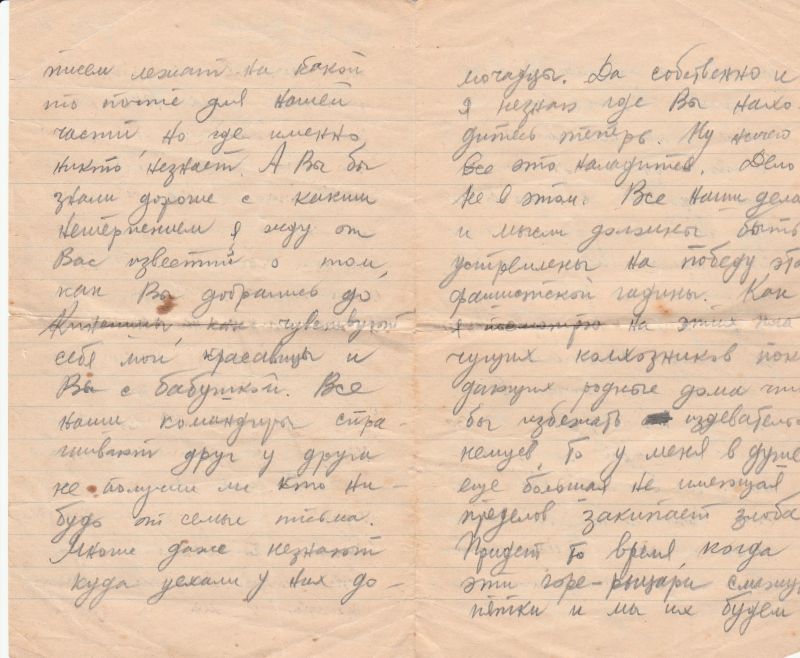 писем лежат на какой
то почте для нашей
части, но где именно
никто незнает. А Вы бы
знали дорогие с каким
нетерпением я жду от
Вас известий о том,
как Вы добрались до
как чувствуют
себя мои красавицы и
Вы с бабушкой. Все
наши командиры спра-
шивают друг у друга
не получил ли кто ни-
будь от семьи письма.
Многие даже незнают
куда уехали у них до-
мочадцы. Да собственно и
я незнаю где Вы нахо
дитесь теперь. Ну ничего
все это наладится. Дело
не в этом. Все наши дела
и мысли должны быть
устремлены на победу этой
фашистской гадины. Как
я посмотрю на этих пла
чущих колхозников поки
дающих родные дома что
бы избежать издевательс
немцев, то у меня в душе
еще большая не имеющая
пределов закипает злоба.
Придет то время когда
эти горе-рыцари смажут
пятки и мы их будем